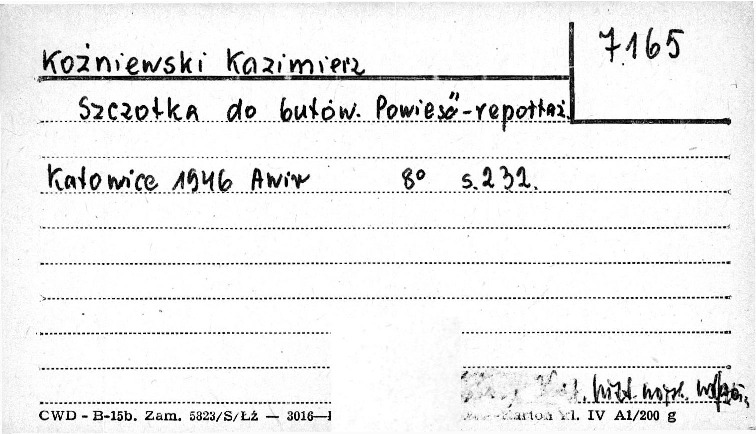 7165
Koźniewski Kazimierz
Szczotka do butów. Powieść-reportaż.
Katowice 1946 Awir 8° s. 232.
CWD - B-15b. Zam. 5323/S/ŁŻ — 3016—
Karton kl. IV A1/200 g